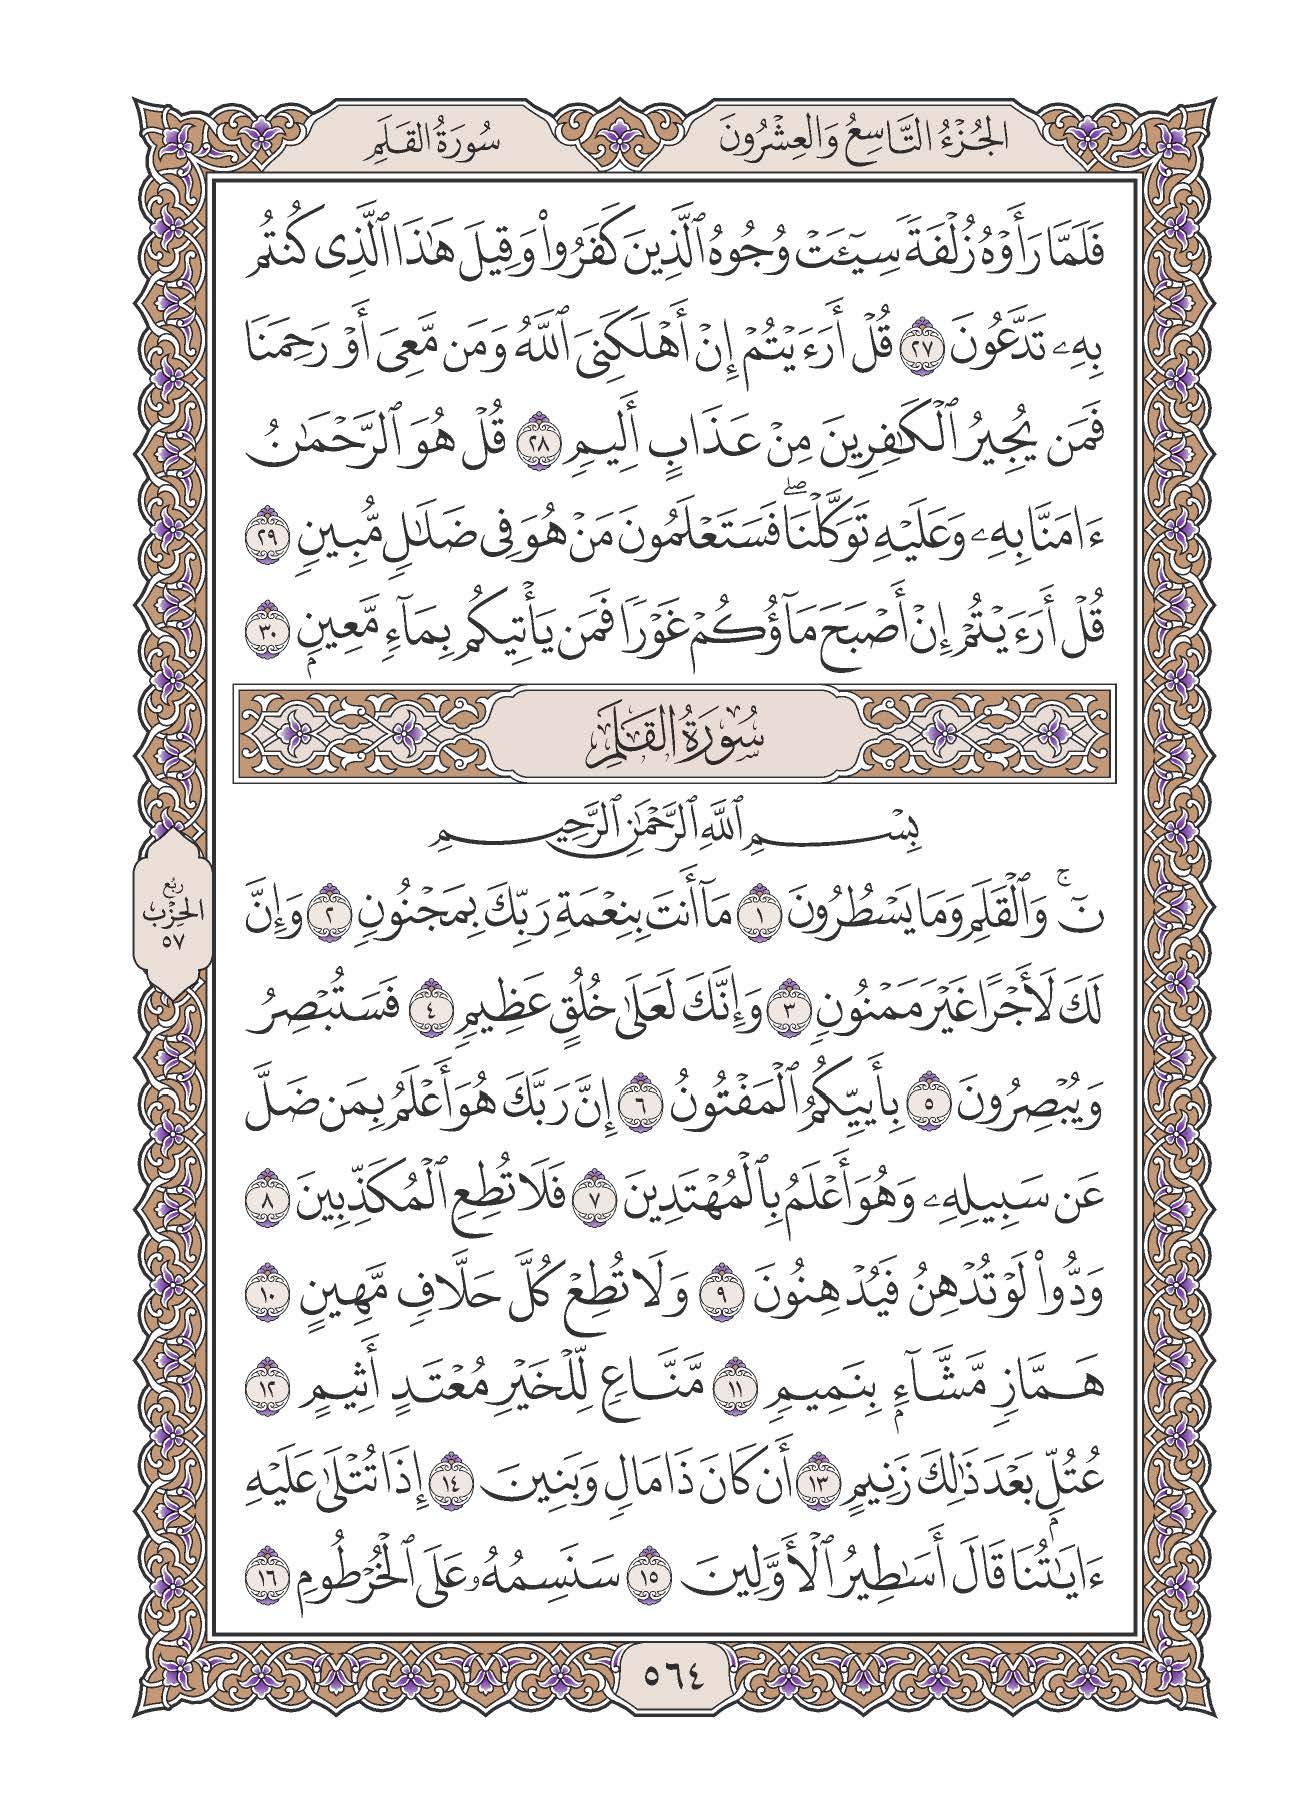 الجُزْءُ التَّاسِعُ وَالعِشْرُونَ
سُورَةُ القَلَمِ
فَلَمَّا رَأَوْهُ زُلْفَةً سِيٓـَٔتْ وُجُوهُ ٱلَّذِينَ كَفَرُوا۟ وَقِيلَ هَٰذَا ٱلَّذِى كُنتُم
بِهِۦ تَدَّعُونَ ٢٧ قُلْ أَرَءَيْتُمْ إِنْ أَهْلَكَنِىَ ٱللَّهُ وَمَن مَّعِىَ أَوْ رَحِمَنَا
فَمَن يُجِيرُ ٱلْكَٰفِرِينَ مِنْ عَذَابٍ أَلِيمٍ ٢٨ قُلْ هُوَ ٱلرَّحْمَٰنُ
ءَامَنَّا بِهِۦ وَعَلَيْهِ تَوَكَّلْنَا ۖ فَسَتَعْلَمُونَ مَنْ هُوَ فِى ضَلَٰلٍ مُّبِينٍ ٢٩
قُلْ أَرَءَيْتُمْ إِنْ أَصْبَحَ مَآؤُكُمْ غَوْرًا فَمَن يَأْتِيكُم بِمَآءٍ مَّعِينٍۭ ٣٠
سُورَةُ القَلَمِ
بِسْمِ ٱللَّهِ ٱلرَّحْمَٰنِ ٱلرَّحِيمِ
نٓ ۚ وَٱلْقَلَمِ وَمَا يَسْطُرُونَ ١ مَآ أَنتَ بِنِعْمَةِ رَبِّكَ بِمَجْنُونٍ ٢ وَإِنَّ
لَكَ لَأَجْرًا غَيْرَ مَمْنُونٍ ٣ وَإِنَّكَ لَعَلَىٰ خُلُقٍ عَظِيمٍ ٤ فَسَتُبْصِرُ
وَيُبْصِرُونَ ٥ بِأَييِّكُمُ ٱلْمَفْتُونُ ٦ إِنَّ رَبَّكَ هُوَ أَعْلَمُ بِمَن ضَلَّ
عَن سَبِيلِهِۦ وَهُوَ أَعْلَمُ بِٱلْمُهْتَدِينَ ٧ فَلَا تُطِعِ ٱلْمُكَذِّبِينَ ٨
وَدُّوا۟ لَوْ تُدْهِنُ فَيُدْهِنُونَ ٩ وَلَا تُطِعْ كُلَّ حَلَّافٍ مَّهِينٍ ١٠
هَمَّازٍ مَّشَّآءٍۭ بِنَمِيمٍ ١١ مَّنَّاعٍ لِّلْخَيْرِ مُعْتَدٍ أَثِيمٍ ١٢
عُتُلٍّۭ بَعْدَ ذَٰلِكَ زَنِيمٍ ١٣ أَن كَانَ ذَا مَالٍ وَبَنِينَ ١٤ إِذَا تُتْلَىٰ عَلَيْهِ
ءَايَٰتُنَا قَالَ أَسَٰطِيرُ ٱلْأَوَّلِينَ ١٥ سَنَسِمُهُۥ عَلَى ٱلْخُرْطُومِ ١٦
ربُع
الحِزْب
٥٧
٥٦٤